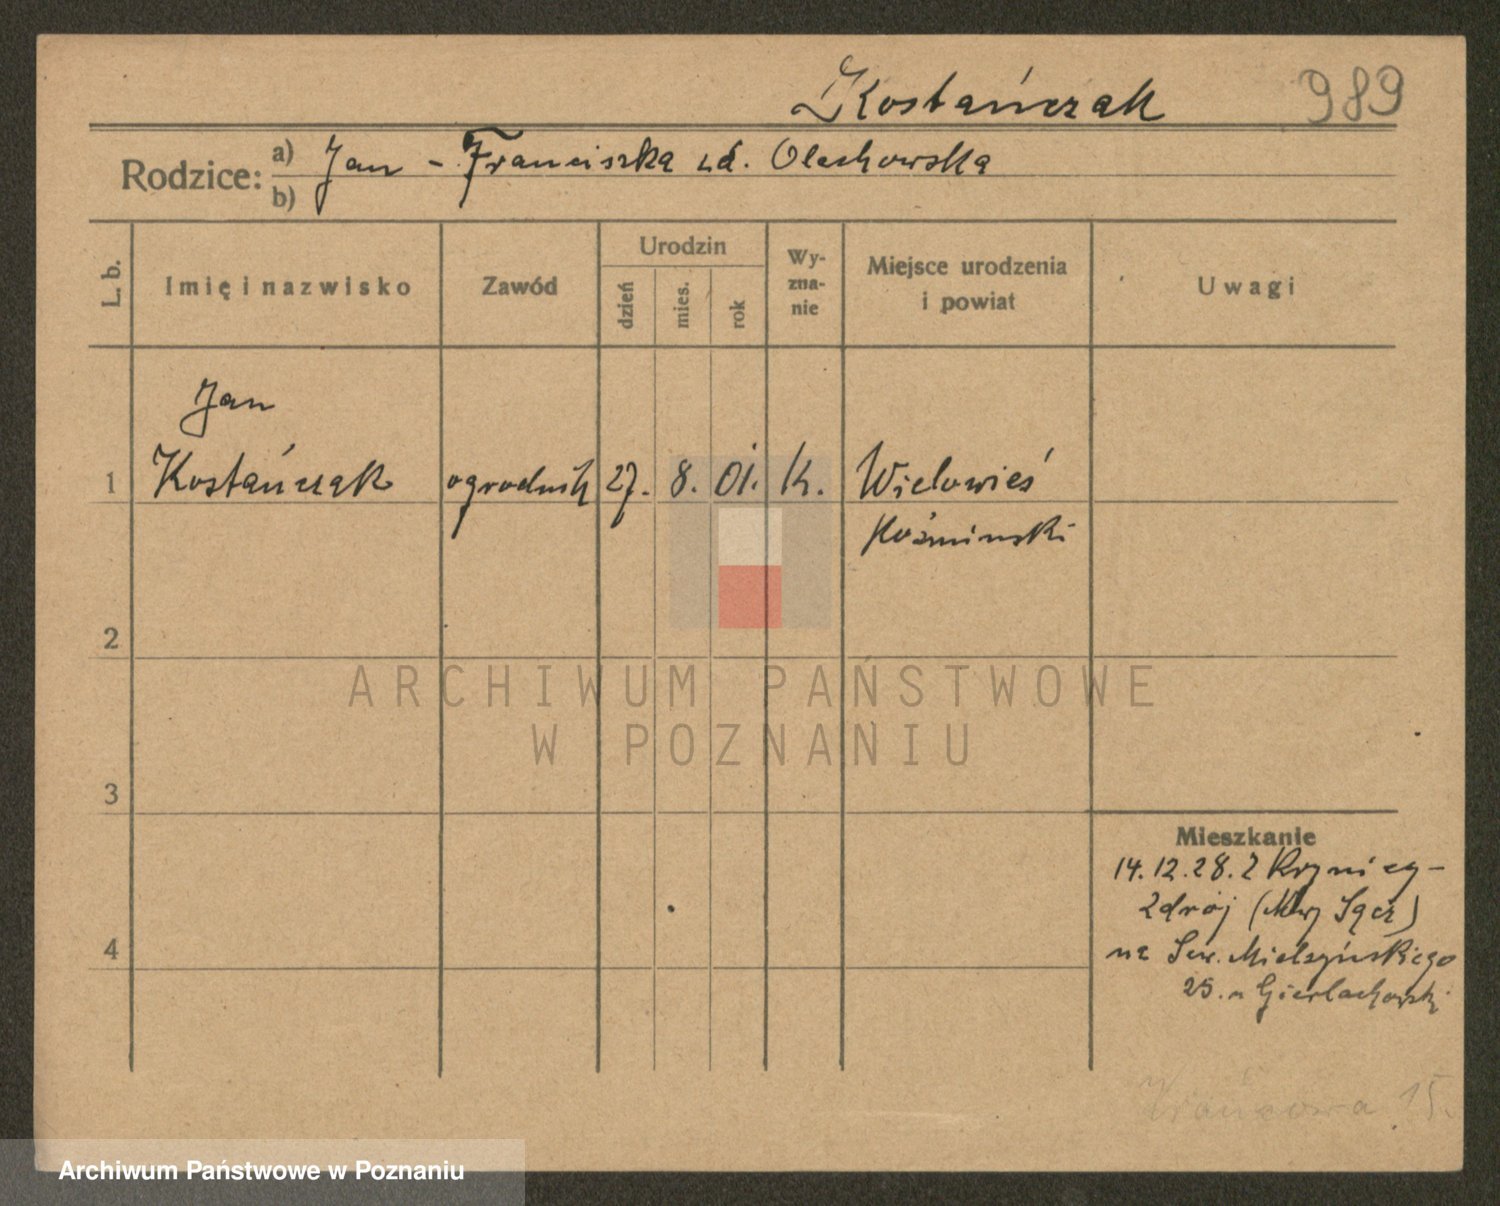 Kostańczak 989
Rodzice: a) Jan - Franciszka zd. Olechowska
b)
L. b. Imię i nazwisko Zawód Urodzin dzień mies. rok Wyznanie Miejsce urodzenia i powiat Uwagi
Jan
1 Kostańczak ogrodnik 27. 8. 01. K. Wielowieś
Koźminski
2
ARCHIWUM PAŃSTWOWE
W POZNANIU
3
Mieszkanie
14.12.28. z Krynicy-
Zdrój (Nwy Sącz)
4
na Sew. Mielżyńskiego
25. u Gierlachowski
15.
Archiwum Państwowe w Poznaniu